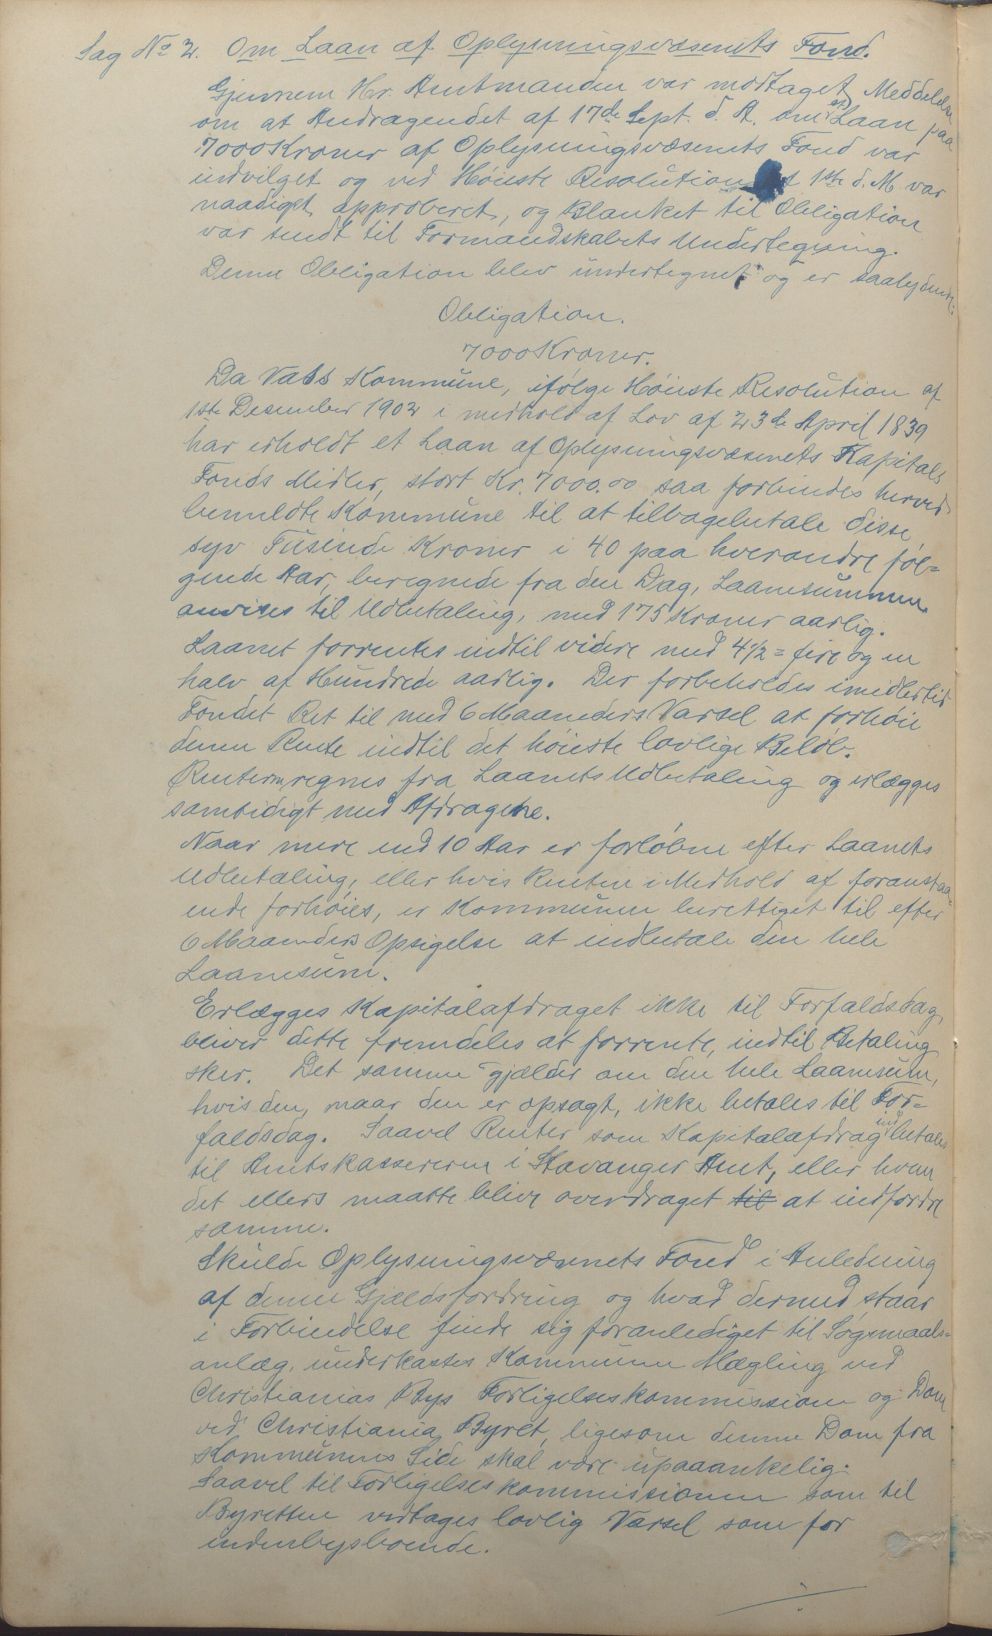 Sag No 2. Om Laan af Oplysningsvæsenets Fond.
Gjennem Hr. Amtmanden var modtaget Meddelelse
om at Andragendet af 17de Sept. d. A. om et Laan paa
7000 Kroner af Oplysningsvæsenets Fond var
indvilget og ved Høieste Resolution af 1ste d. M. var
naadigst approberet, og Blanket til Obligation
var sendt til Formandskabets Undertegning.
Denne Obligation blev undertegnet og er saalydende:
Obligation.
7000 Kroner.
Da Vats Kommune, ifølge Høieste Resolution af
1ste Desember 1902 i medhold af Lov af 23de April 1839
har erholdt et Laan af Oplysningsvæsenets Kapitals
Fonds Midler, stort Kr. 7000.00 saa forbindes herved
bemeldte Kommune til at tilbagebetale disse
syv Tusinde Kroner i 40 paa hverandre føl=
gende Aar, beregnede fra den Dag, Laanesummen
anvises til Udbetaling, med 175 Kroner aarlig.
Laanet forrentes indtil videre med 4½ = fire og en
halv af Hundrede aarlig. Der forbeholdes imidlertid
Fondet Ret til med 6 Maaneders Varsel at forhøie
denne Rente indtil det høieste lovlige Beløb.
Renterne regnes fra Laanets Udbetaling og erlægges
samtidigt med Afdragene.
Naar mere end 10 Aar er forløbne efter Laanets
Udbetaling, eller hvis Renten i Medhold af foranstaa-
ende forhøies, er Kommunen berettiget til efter
6 Maaneders Opsigelse at indbetale den hele
Laanesum.
Erlægges Kapitalafdraget ikke til Forfaldsdag,
bliver dette fremdeles at forrente, indtil Betaling
sker. Det samme gjælder om den hele Laanesum,
hvis den, naar den er opsagt, ikke betales til For-
faldsdag. Saavel Renter som Kapitalafdrag indbetales
til Amtskassereren i Stavanger Amt, eller hvem
det ellers maatte blive overdraget til at indfordre
samme.
Skulde Oplysningsvæsenets Fond i Anledning
af denne Gjældsfordring og hvad dermed staar
i Forbindelse finde sig foranlediget til Søgsmaals-
anlæg, underkastes Kommunen Mægling ved
Christianias Bys Forligelseskommission og Dom
ved Christiania Byret, ligesom denne Dom fra
Kommunens Side skal være upaaankelig.
Saavel til Forligelseskommissionen som til
Byretten vedtages lovlig Varsel som for
indenbysboende.